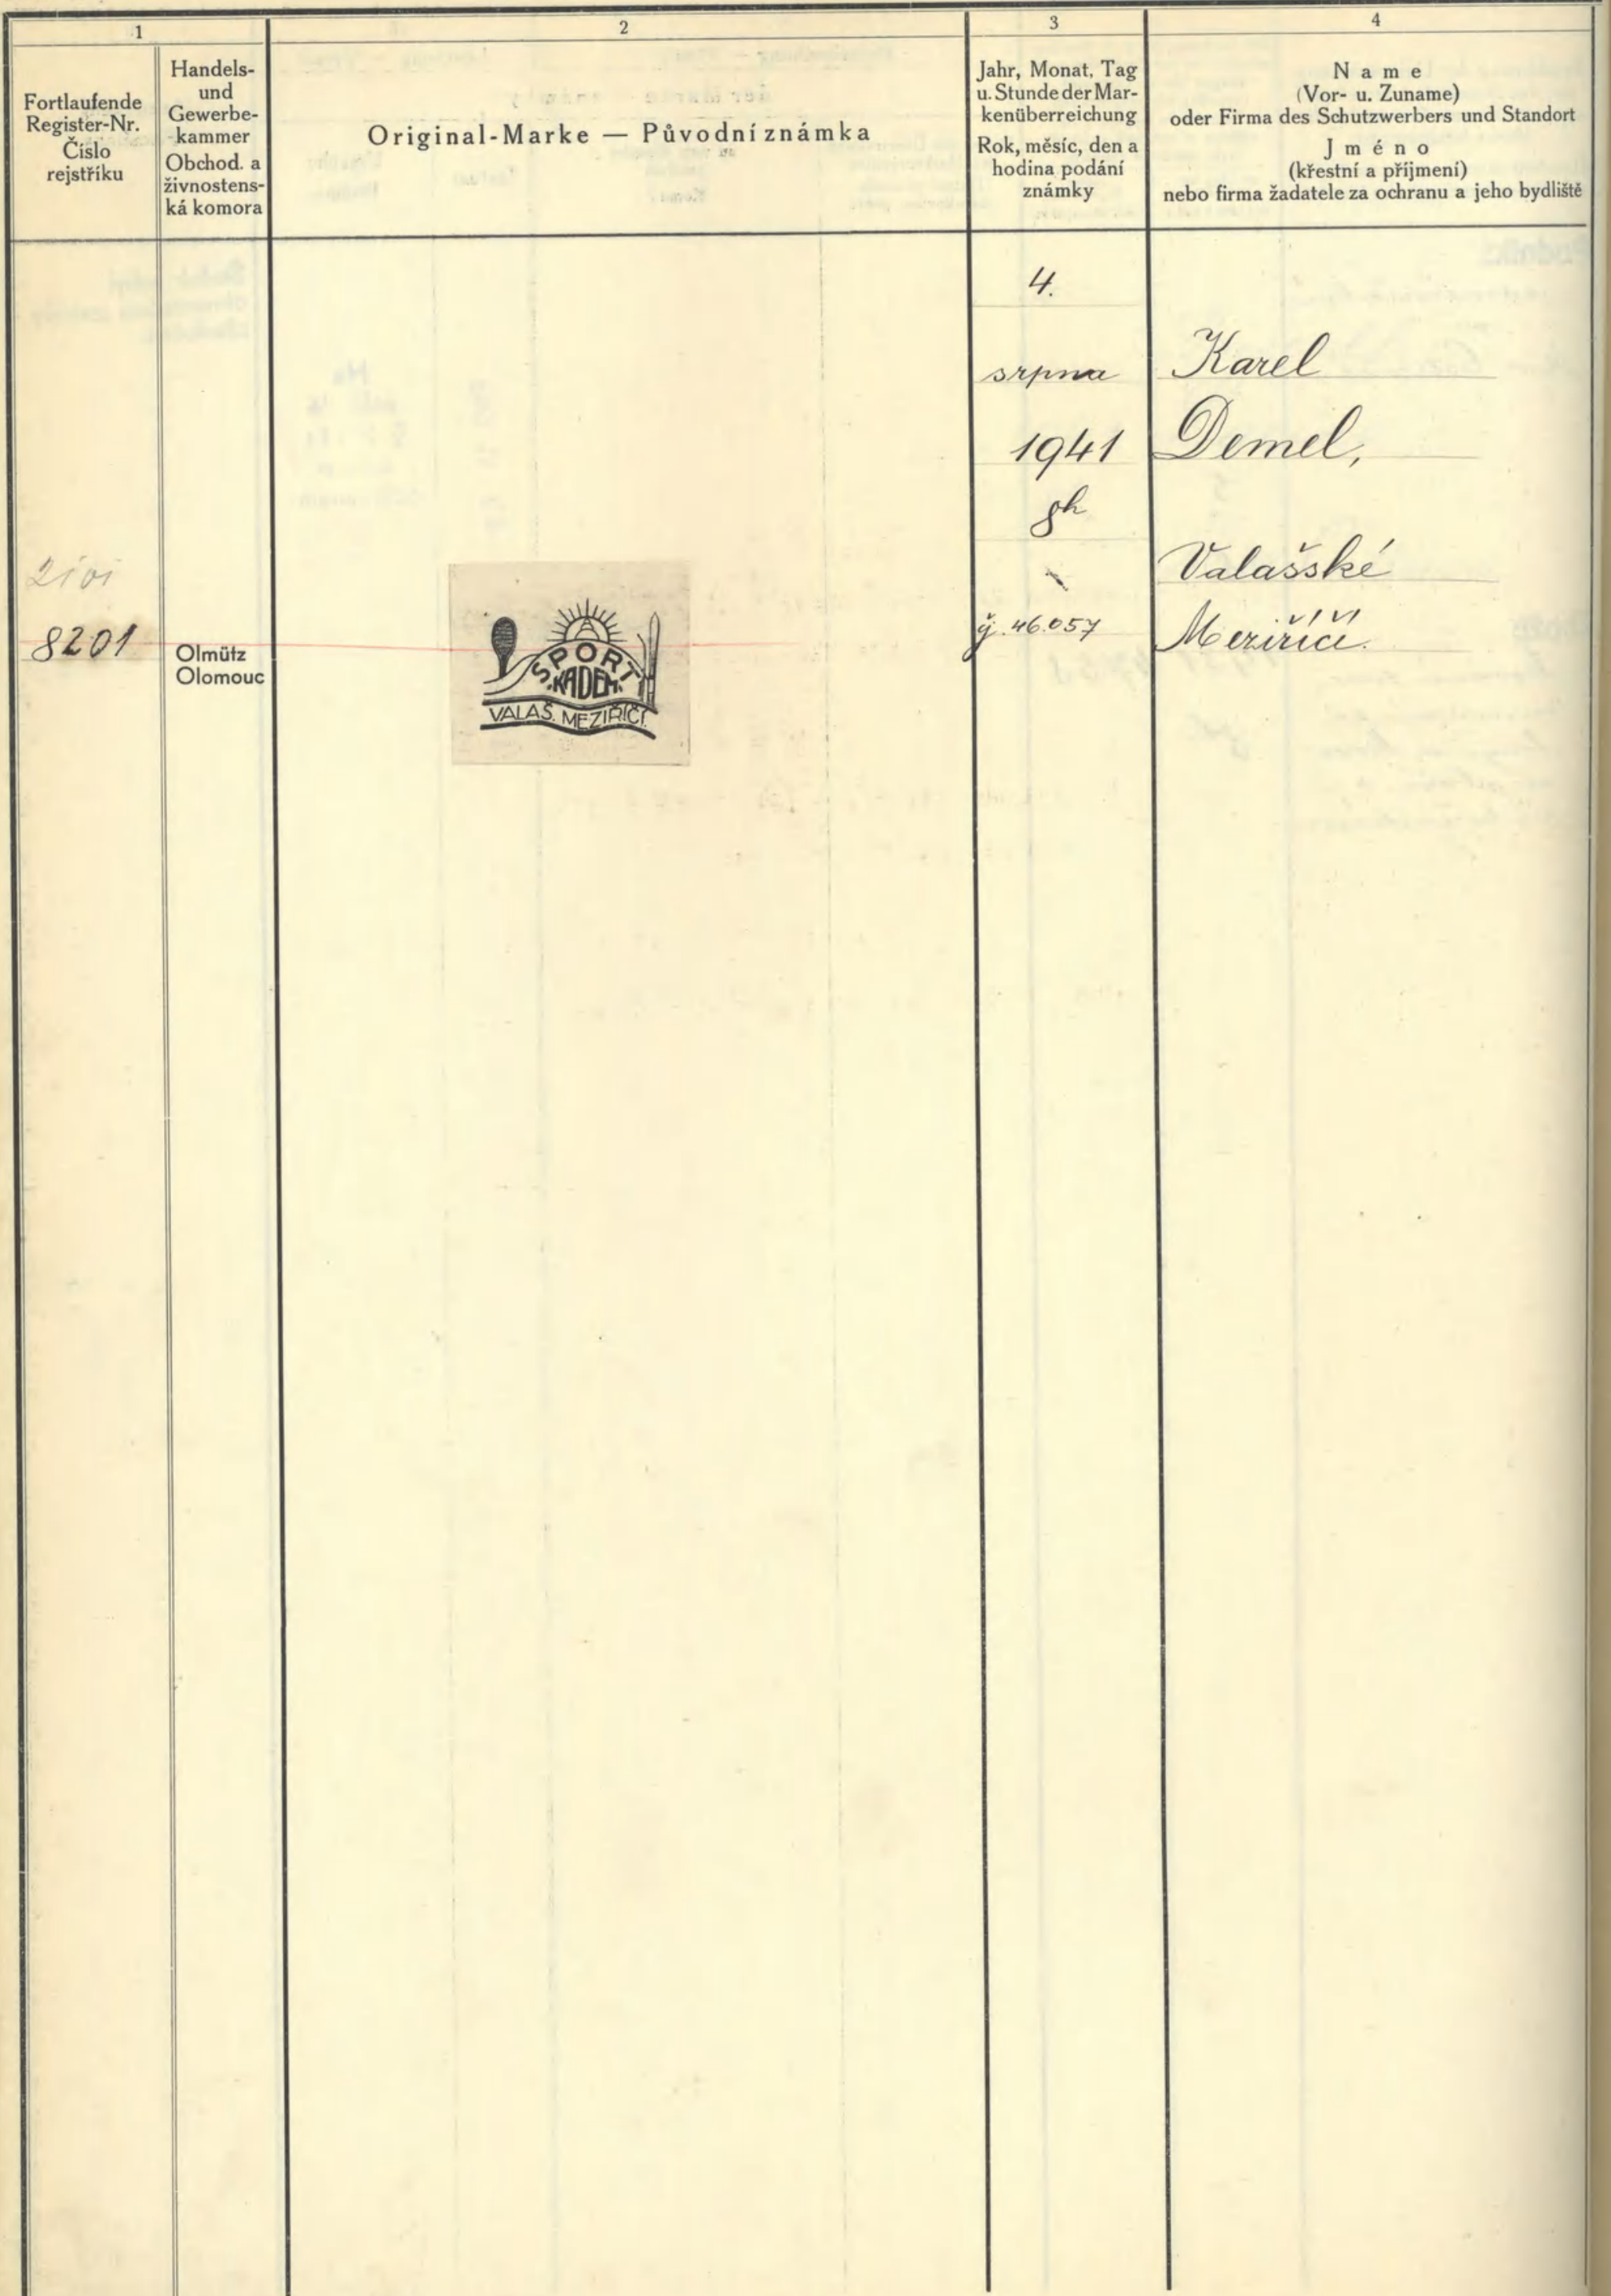 1
Fortlaufende
Register-Nr.
Číslo
rejstříku
Handels-
und
Gewerbe-
kammer
Obchod. a
živnostens-
ká komora
2
Original-Marke — Původní známka
3
Jahr, Monat, Tag
u. Stunde der Mar-
kenüberreichung
Rok, měsíc, den a
hodina podání
známky
4
Name
(Vor- u. Zuname)
oder Firma des Schutzwerbers und Standort
Jméno
(křestní a příjmení)
nebo firma žadatele za ochranu a jeho bydliště
8201
Olmütz
Olomouc
SPORT
"KADEM"
VALAŠ. MEZIŘÍČÍ.
4.
srpna
1941
8h
46.057
Karel
Demel,
Valašské
Meziříčí.